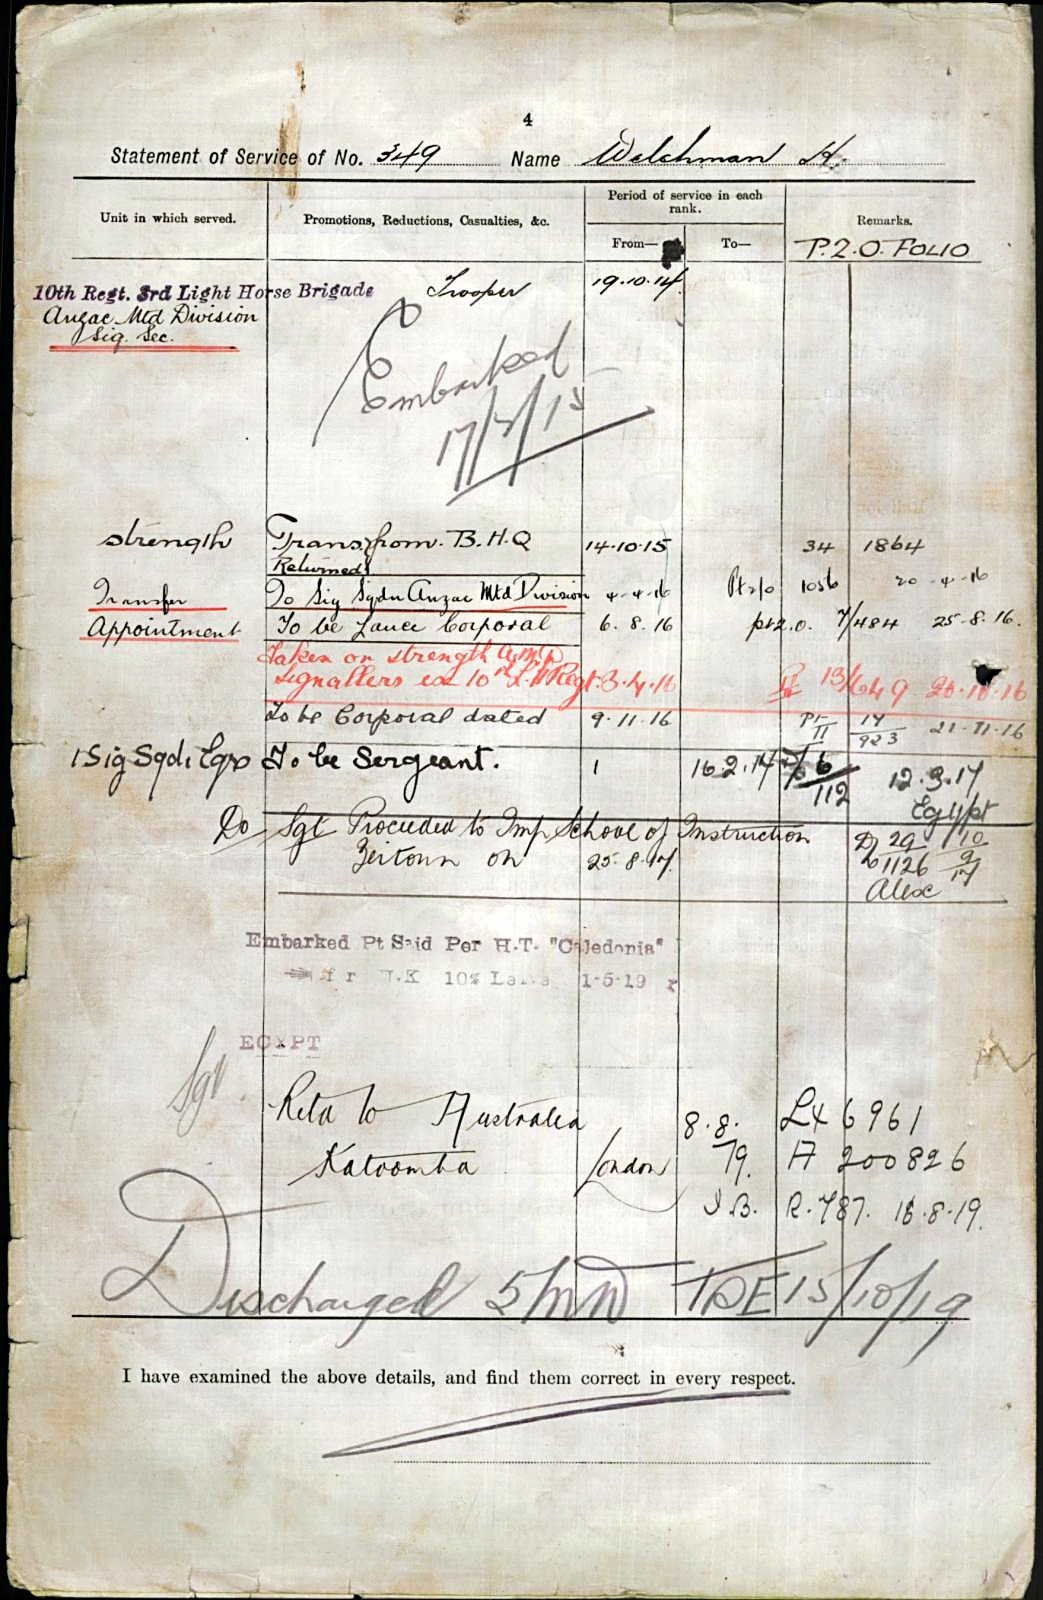 4
Statement of Service of No. 349 Name Welchman H.
Unit in which served. Promotions, Reductions, Casualties, &c. Period of service in each rank. Remarks.
From— To— P.2.O. FOLIO
10th Regt. 3rd Light Horse Brigade Trooper 19.10.14
Anzac Mtd Division
Sig. Sec.
Embarked
17/2/15
Strength Trans. from B.H.Q 14.10.15 34 1864
Returned
Transfer To Sig Sqdn Anzac Mtd Division 4-4-16 Pt 2/0 1056 20-4-16
Appointment To be Lance Corporal 6.8.16 pt 2.0. 7/484 25-8.16.
Taken on strength A.M.D
Signallers ex 10th L.H Regt. 3.4.16 II 13/649 26.10.16
To be Corporal dated 9.11.16 Pt II 14/923 21-11-16
1 Sig Sqdn Egp To be Sergeant. 1 16.2.17 6/112 12.3.17
Egypt
Do Sgt Proceeded to Imp School of Instruction 29 10
Zeitoun on 25.8.17. 1126 9/17
Alex
Embarked Pt Said Per H.T. "Caledonia"
U.K 10% Leave 1-5-19
EGYPT
Sgt
Retd to Australia 8.8. L4 6961
Katoomba London 19. A 200826
I.B. R.787. 16.8.19.
Discharged 5/MD TPE 15/10/19
I have examined the above details, and find them correct in every respect.